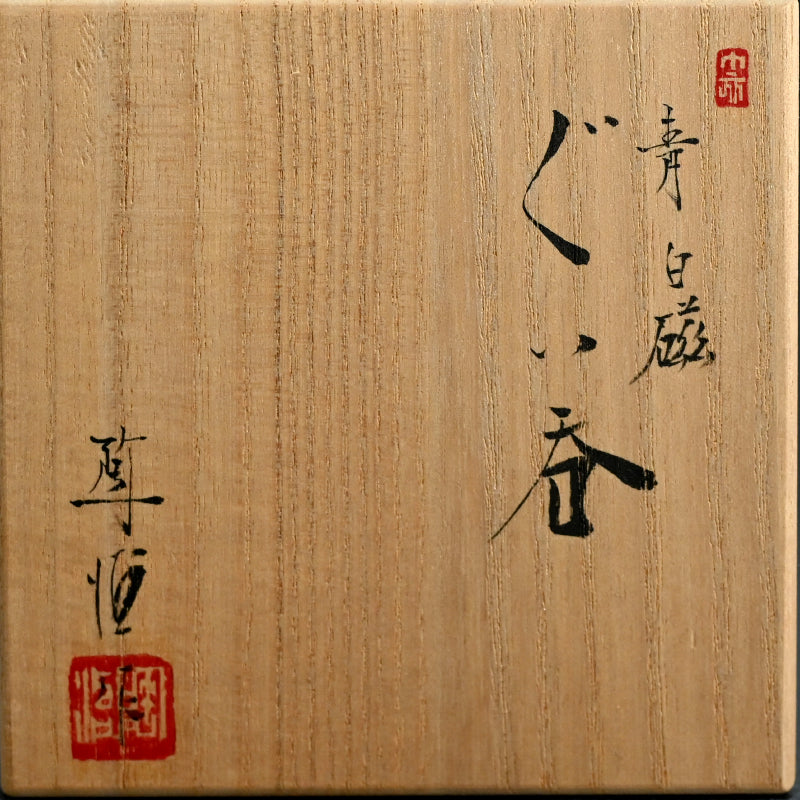 青白磁
ぐい呑
尊恒作